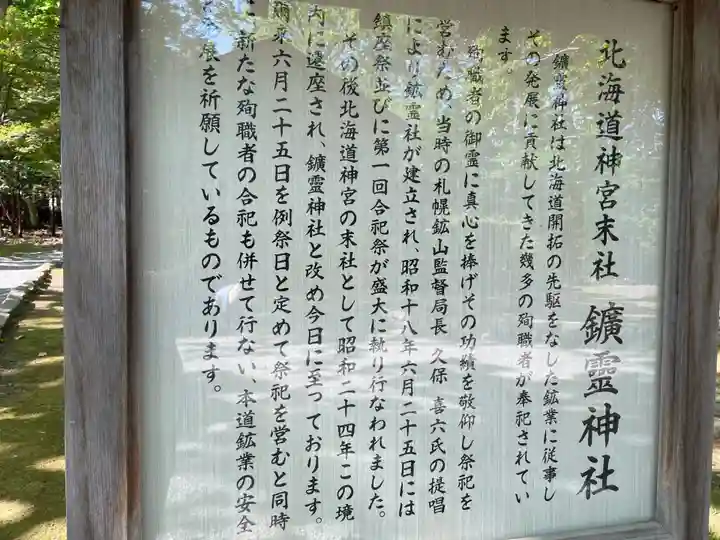 北海道神宮末社 鑛霊神社
鑛霊神社は北海道開拓の先駆をなした鉱業に従事し
その発展に貢献してきた幾多の殉職者が奉祀されてい
ます。
殉職者の御霊に真心を捧げその功績を敬仰し祭祀を
営むため、当時の札幌鉱山監督局長 久保 喜六氏の提唱
により鉱霊社が建立され、昭和十八年六月二十五日には
鎮座祭並びに第一回合祀祭が盛大に執り行なわれました。
その後北海道神宮の末社として昭和二十四年この境
内に遷座され、鑛霊神社と改め今日に至っております。
爾来六月二十五日を例祭日と定めて祭祀を営むと同時
に、新たな殉職者の合祀も併せて行ない、本道鉱業の安全
展を祈願しているものであります。